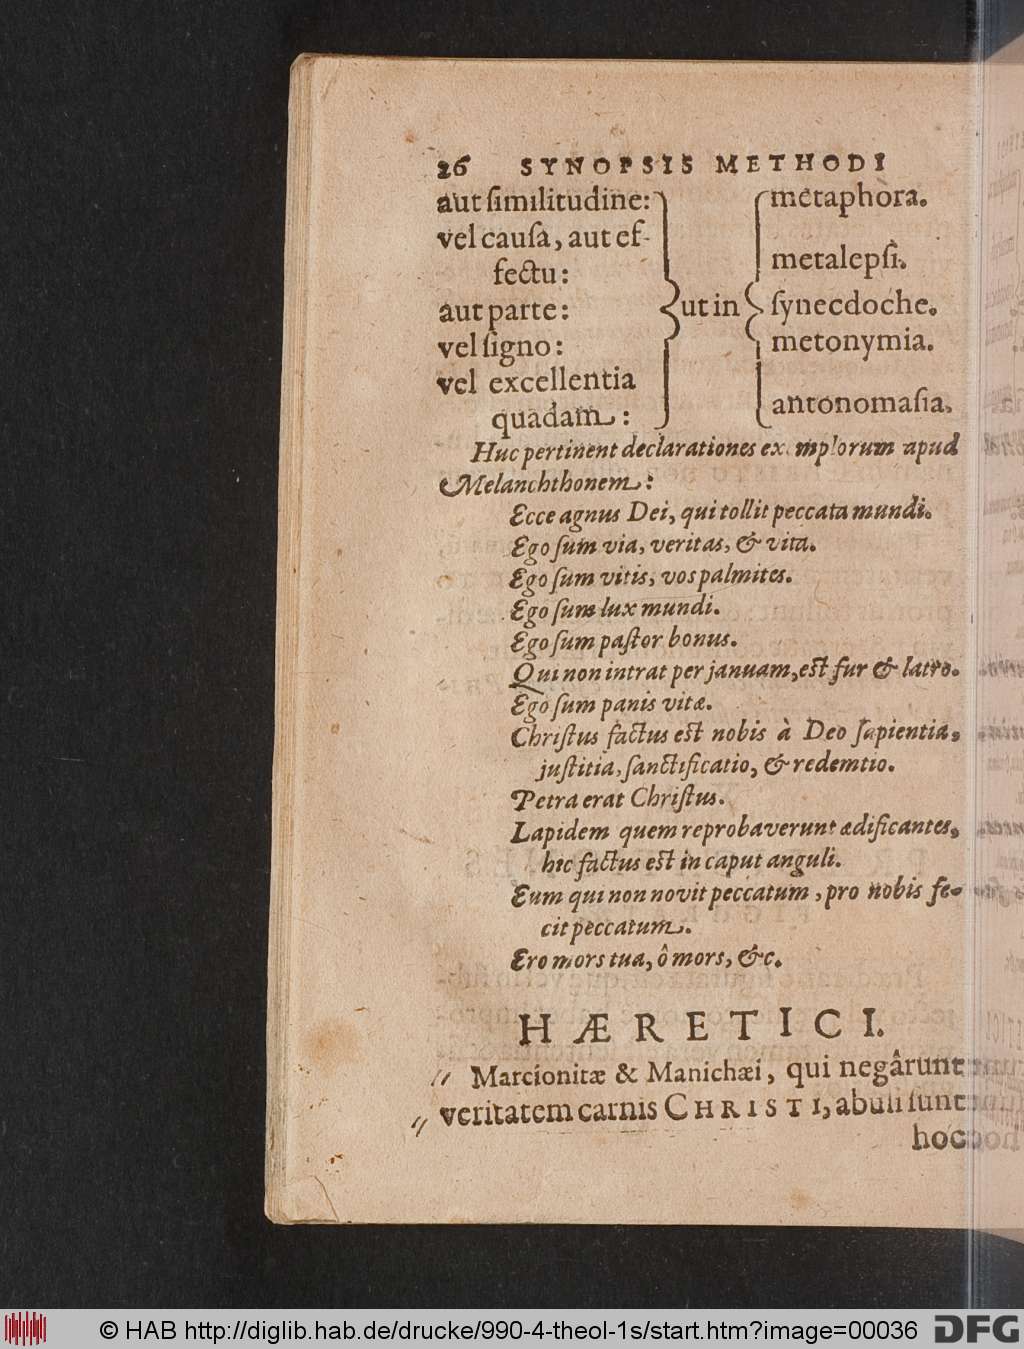 26 SYNOPSIS METHODI
aut ſimilitudine: metaphora.
vel cauſa, aut ef-
fectu: metalepſi.
aut parte: ut in ſynecdoche.
vel ſigno: metonymia.
vel excellentia
quadam: antonomaſia.
Huc pertinent declarationes exemplorum apud
Melanchthonem:
Ecce agnus Dei, qui tollit peccata mundi.
Ego ſum via, veritas, & vita.
Ego ſum vitis, vos palmites.
Ego ſum lux mundi.
Ego ſum paſtor bonus.
Qui non intrat per januam, eſt fur & latro.
Ego ſum panis vitæ.
Chriſtus factus eſt nobis à Deo ſapientia,
juſtitia, ſanctificatio, & redemtio.
Petra erat Chriſtus.
Lapidem quem reprobaverunt ædificantes,
hic factus eſt in caput anguli.
Eum qui non novit peccatum, pro nobis fe-
cit peccatum.
Ero mors tua, ô mors, &c.
HÆRETICI.
Marcionitæ & Manichæi, qui negârunt
veritatem carnis CHRISTI, abuſi ſunt
hoc
© HAB http://diglib.hab.de/drucke/990-4-theol-1s/start.htm?image=00036
DFG